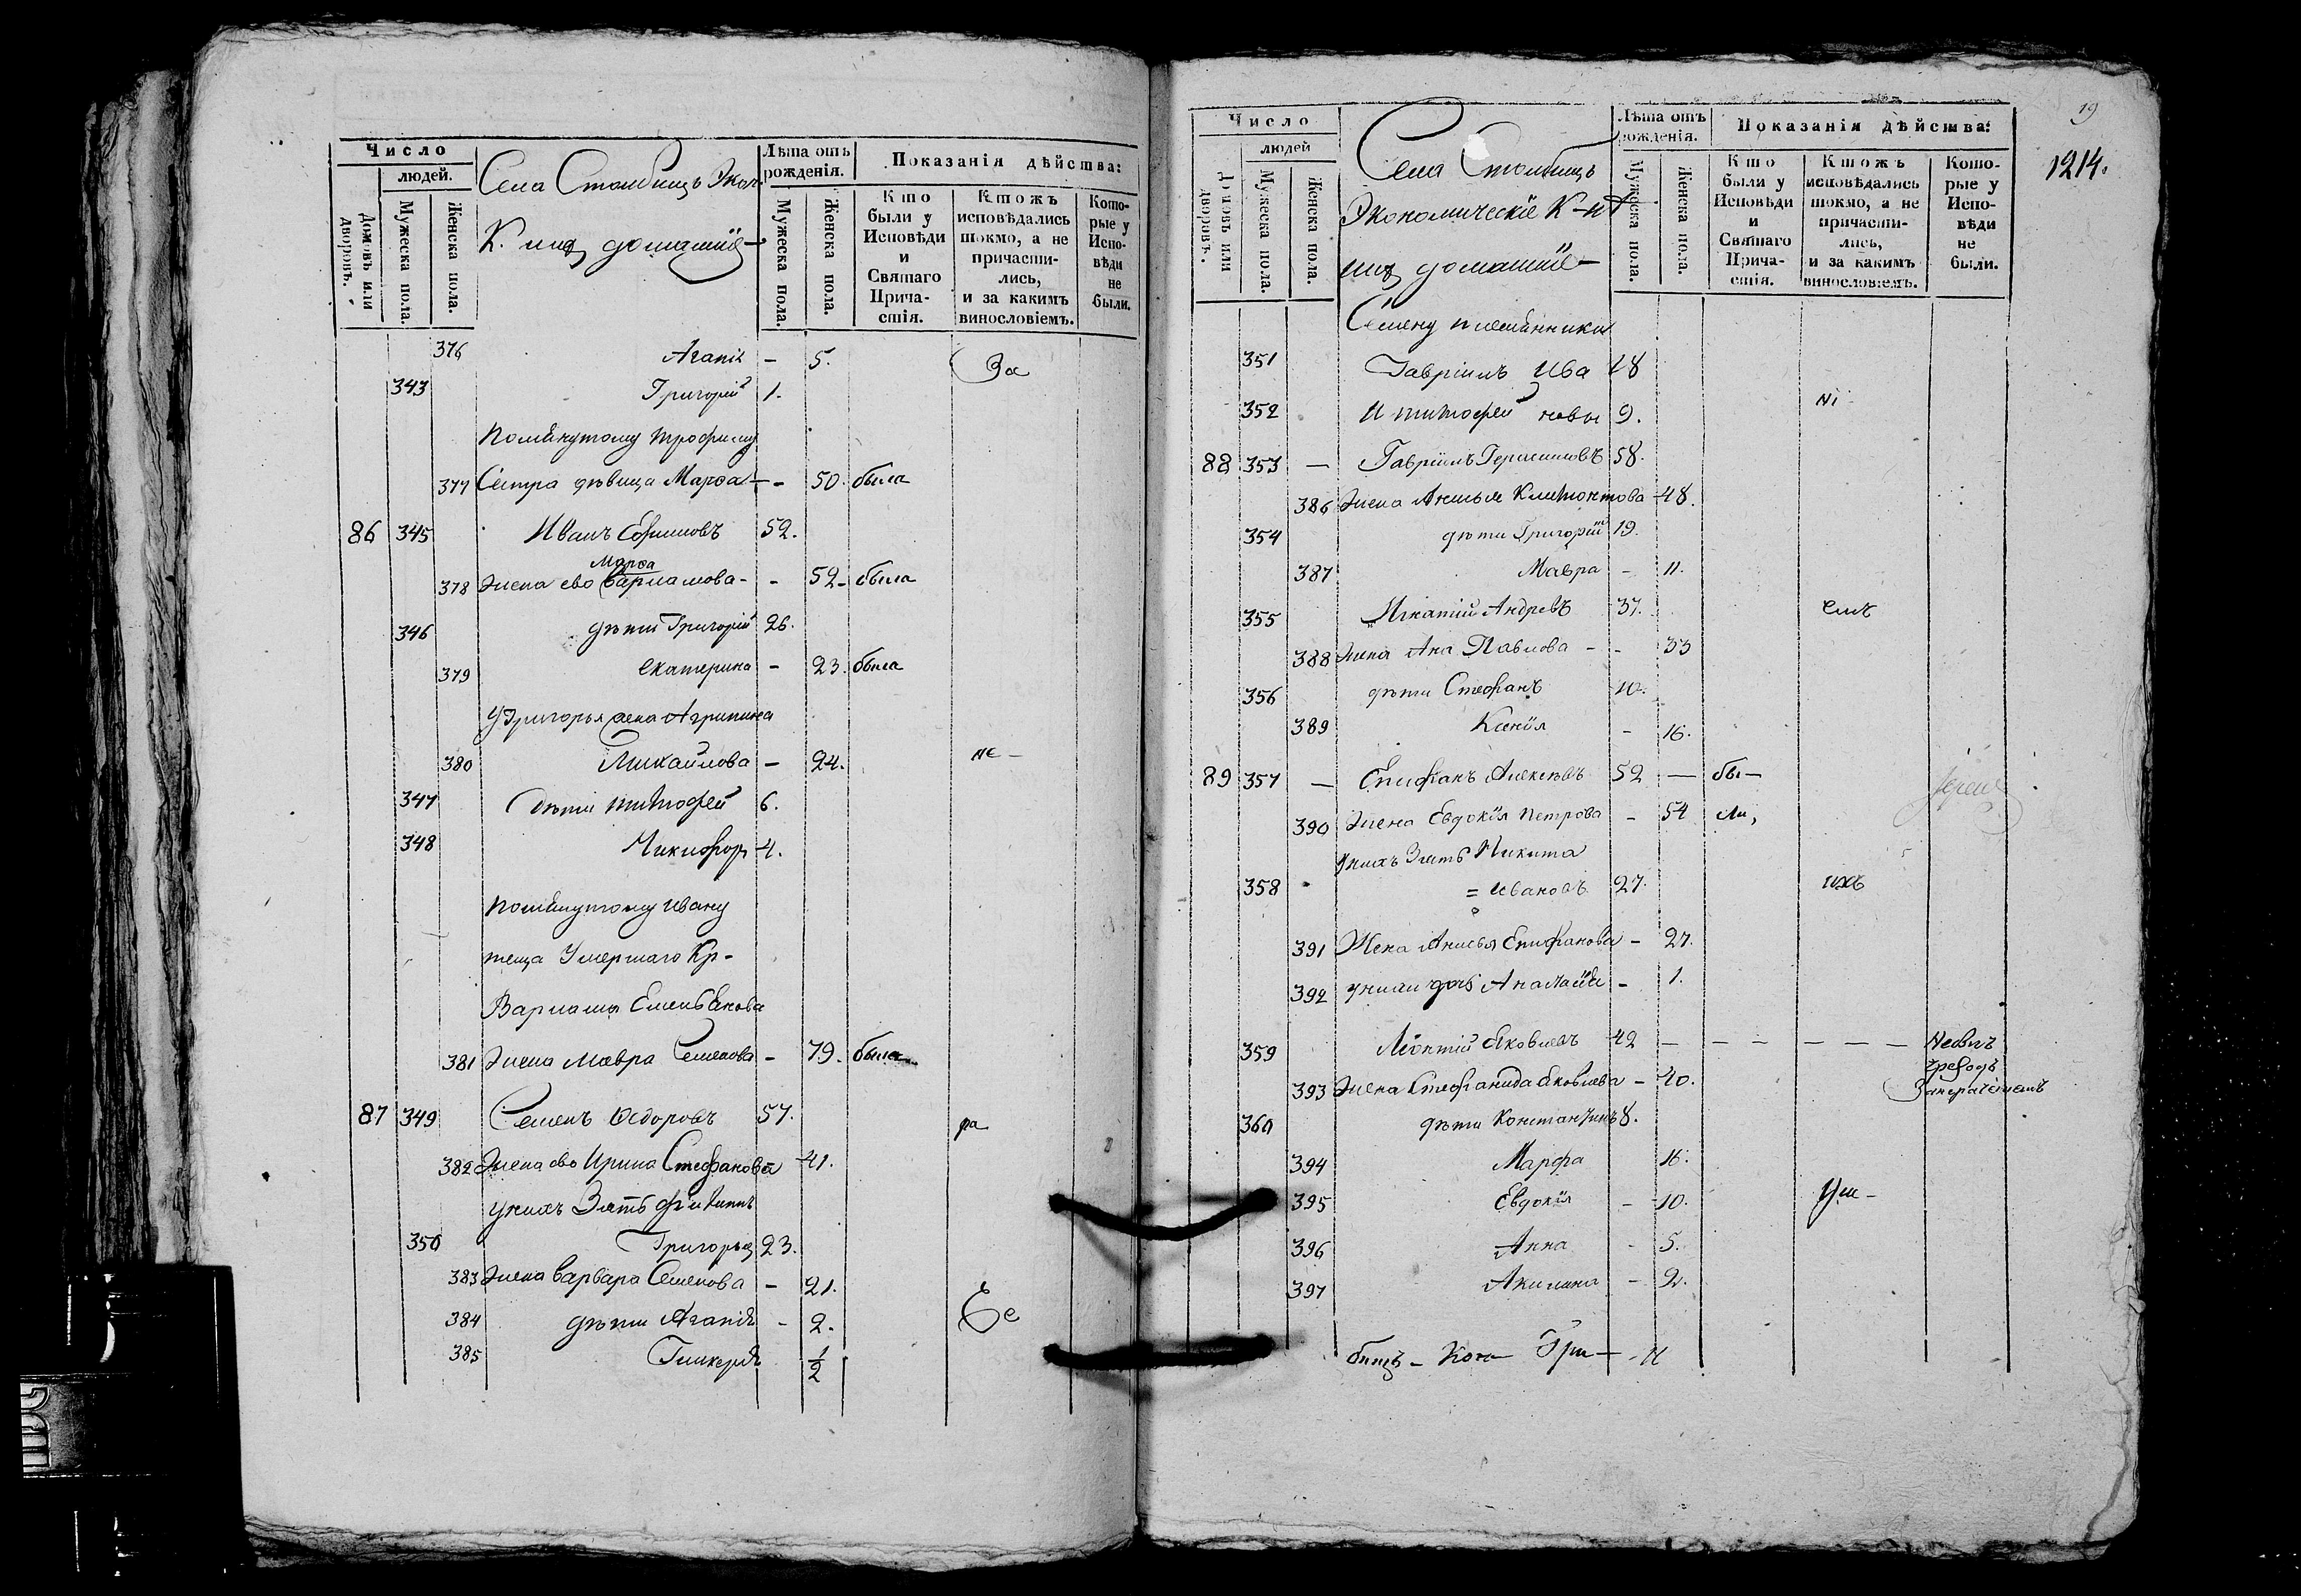 Число
людей.
Домовъ или дворовъ.
Мужеска пола.
Женска пола.
Села Столбищъ Экон.
К. ихъ домашнiе
Лѣта отъ рожденiя.
Мужеска пола.
Женска пола.
Показанiя дѣйства:
Кто были у Исповѣди и Святаго Прича- стiя.
Ктожъ исповѣдались токмо, а не причасти- лись, и за какимъ винословiемъ.
Кото- рые у Испо- вѣди не были.
376 Агапiя – 5. За
343 Григорiй 1.
Помянутому Трофиму
377 Сестра дѣвица Марѳа – 50. была
86 345 Иванъ Ефимовъ 52.
Марѳа
378 Жена ево Варламова – 52 – была
346 дѣти Григорiй 26.
379 Екатерина – 23. была
У Григорья жена Агрипина
380 Михайлова – 24. не –
347 Дѣти Тимофей 6.
348 Никифоръ 4.
Помянутому Ивану
теща Умершаго Кр-
Варлама
381 Жена Мавра Семенова – 79. была
87 349 Семенъ Ѳедоровъ 57. ра
382 Жена ево Ирина Стефанова 41.
У нихъ Зять Филиппъ
350 Григорьев 23.
383 Жена Варвара Семенова – 21.
384 дѣти Агапiя – 2.
385 Гликерiя 1/2
19
1214.
Число
людей
Домовъ или дворовъ.
Мужеска пола.
Женска пола.
Села Столбищъ
Экономическiе К-не
ихъ домашнiе –
Лѣта отъ рожденiя.
Мужеска пола.
Женска пола.
Показанiя дѣйства:
Кто были у Исповѣди и Святаго Прича- стiя.
Ктожъ исповѣдались токмо, а не причасти- лись, и за какимъ винословiемъ.
Кото- рые у Испо- вѣди не были.
Семену племянники
351 Гаврiилъ Ива 18
352 И Тимофей новы 9. нi
88 353 — Гаврiилъ Герасимовъ 58.
386 Жена Анисья Климонтова 48.
354 дѣти Григорiй 19.
387 Мавра – 11.
355 Игнатiй Андревъ 37. емъ
388 Жена Ана Павлова – – 33
356 дѣти Стефанъ 10.
389 Ксенiя – 16.
89 357 — Епифанъ Алексѣевъ 52 — бы —
390 Жена Евдокiя Петрова – 54 ли,
У нихъ Зять Никита
358 = Ивановъ 27. ихъ
391 Жена Анисья Епифанова – 27.
392 У нихъ дочь – 1.
359 Леонтiй Яковлевъ 42 — — — — — — Небылъ
Занерачѣнiемъ
393 Жена Стефанида Яковлева – 40.
360 дѣти Константинъ 8.
394 Марфа 16.
395 Евдокiя – 10. Ум –
396 Анна – 5.
397 Акилина – 2.
бищъ – Кон – Гри –